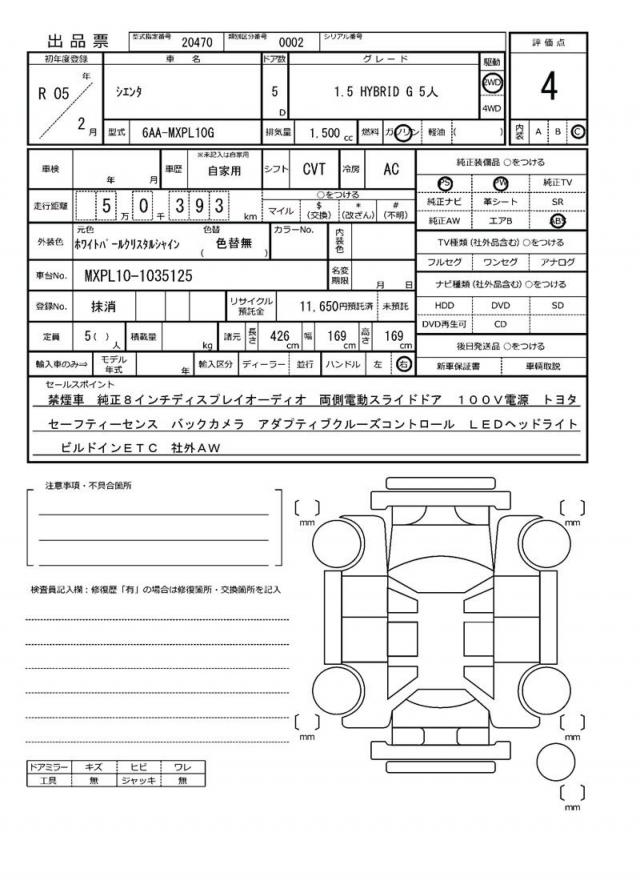 出品票 型式指定番号 20470 類別区分番号 0002 シリアル番号
初年度登録 車名 ドア数 グレード 駆動 評価点
R 05 年 2 月 シエンタ 5 D 1.5 HYBRID G 5人 2WD 4WD 4
型式 6AA-MXPL10G 排気量 1,500 cc 燃料 ガソリン 軽油 ( ) 内装 A B C
車検 年 月 車歴 ※未記入は自家用 自家用 シフト CVT 冷房 AC 純正装備品 ○をつける
PS PW 純正TV
走行距離 5 万 0 千 3 9 3 km ○をつける マイル $ (交換) * (改ざん) # (不明)
純正ナビ 革シート SR
純正AW エアB ABS
外装色 元色 ホワイトパールクリスタルシャイン 色替 ( 色替無 ) カラーNo. 内装色
TV種類 (社外品含む) ○をつける
フルセグ ワンセグ アナログ
車台No. MXPL10-1035125 名変期限 月 日
ナビ種類 (社外品含む) ○をつける
登録No. 抹消 リサイクル預託金 11,650円預託済 未預託
HDD DVD SD
DVD再生可 CD
定員 5( ) 人 積載量 kg 諸元 長さ 426 cm 幅 169 cm 高さ 169 cm
後日発送品 ○をつける
輸入車のみ⇒ モデル年式 年 輸入区分 ディーラー 並行 ハンドル 左 右 新車保証書 車輌取説
セールスポイント
禁煙車 純正8インチディスプレイオーディオ 両側電動スライドドア 100V電源 トヨタ
セーフティーセンス バックカメラ アダプティブクルーズコントロール LEDヘッドライト
ビルドインETC 社外AW
注意事項・不具合箇所
mm mm
検査員記入欄:修復歴「有」の場合は修復箇所・交換箇所を記入
mm mm
ドアミラー キズ ヒビ ワレ
工具 無 ジャッキ 無
mm